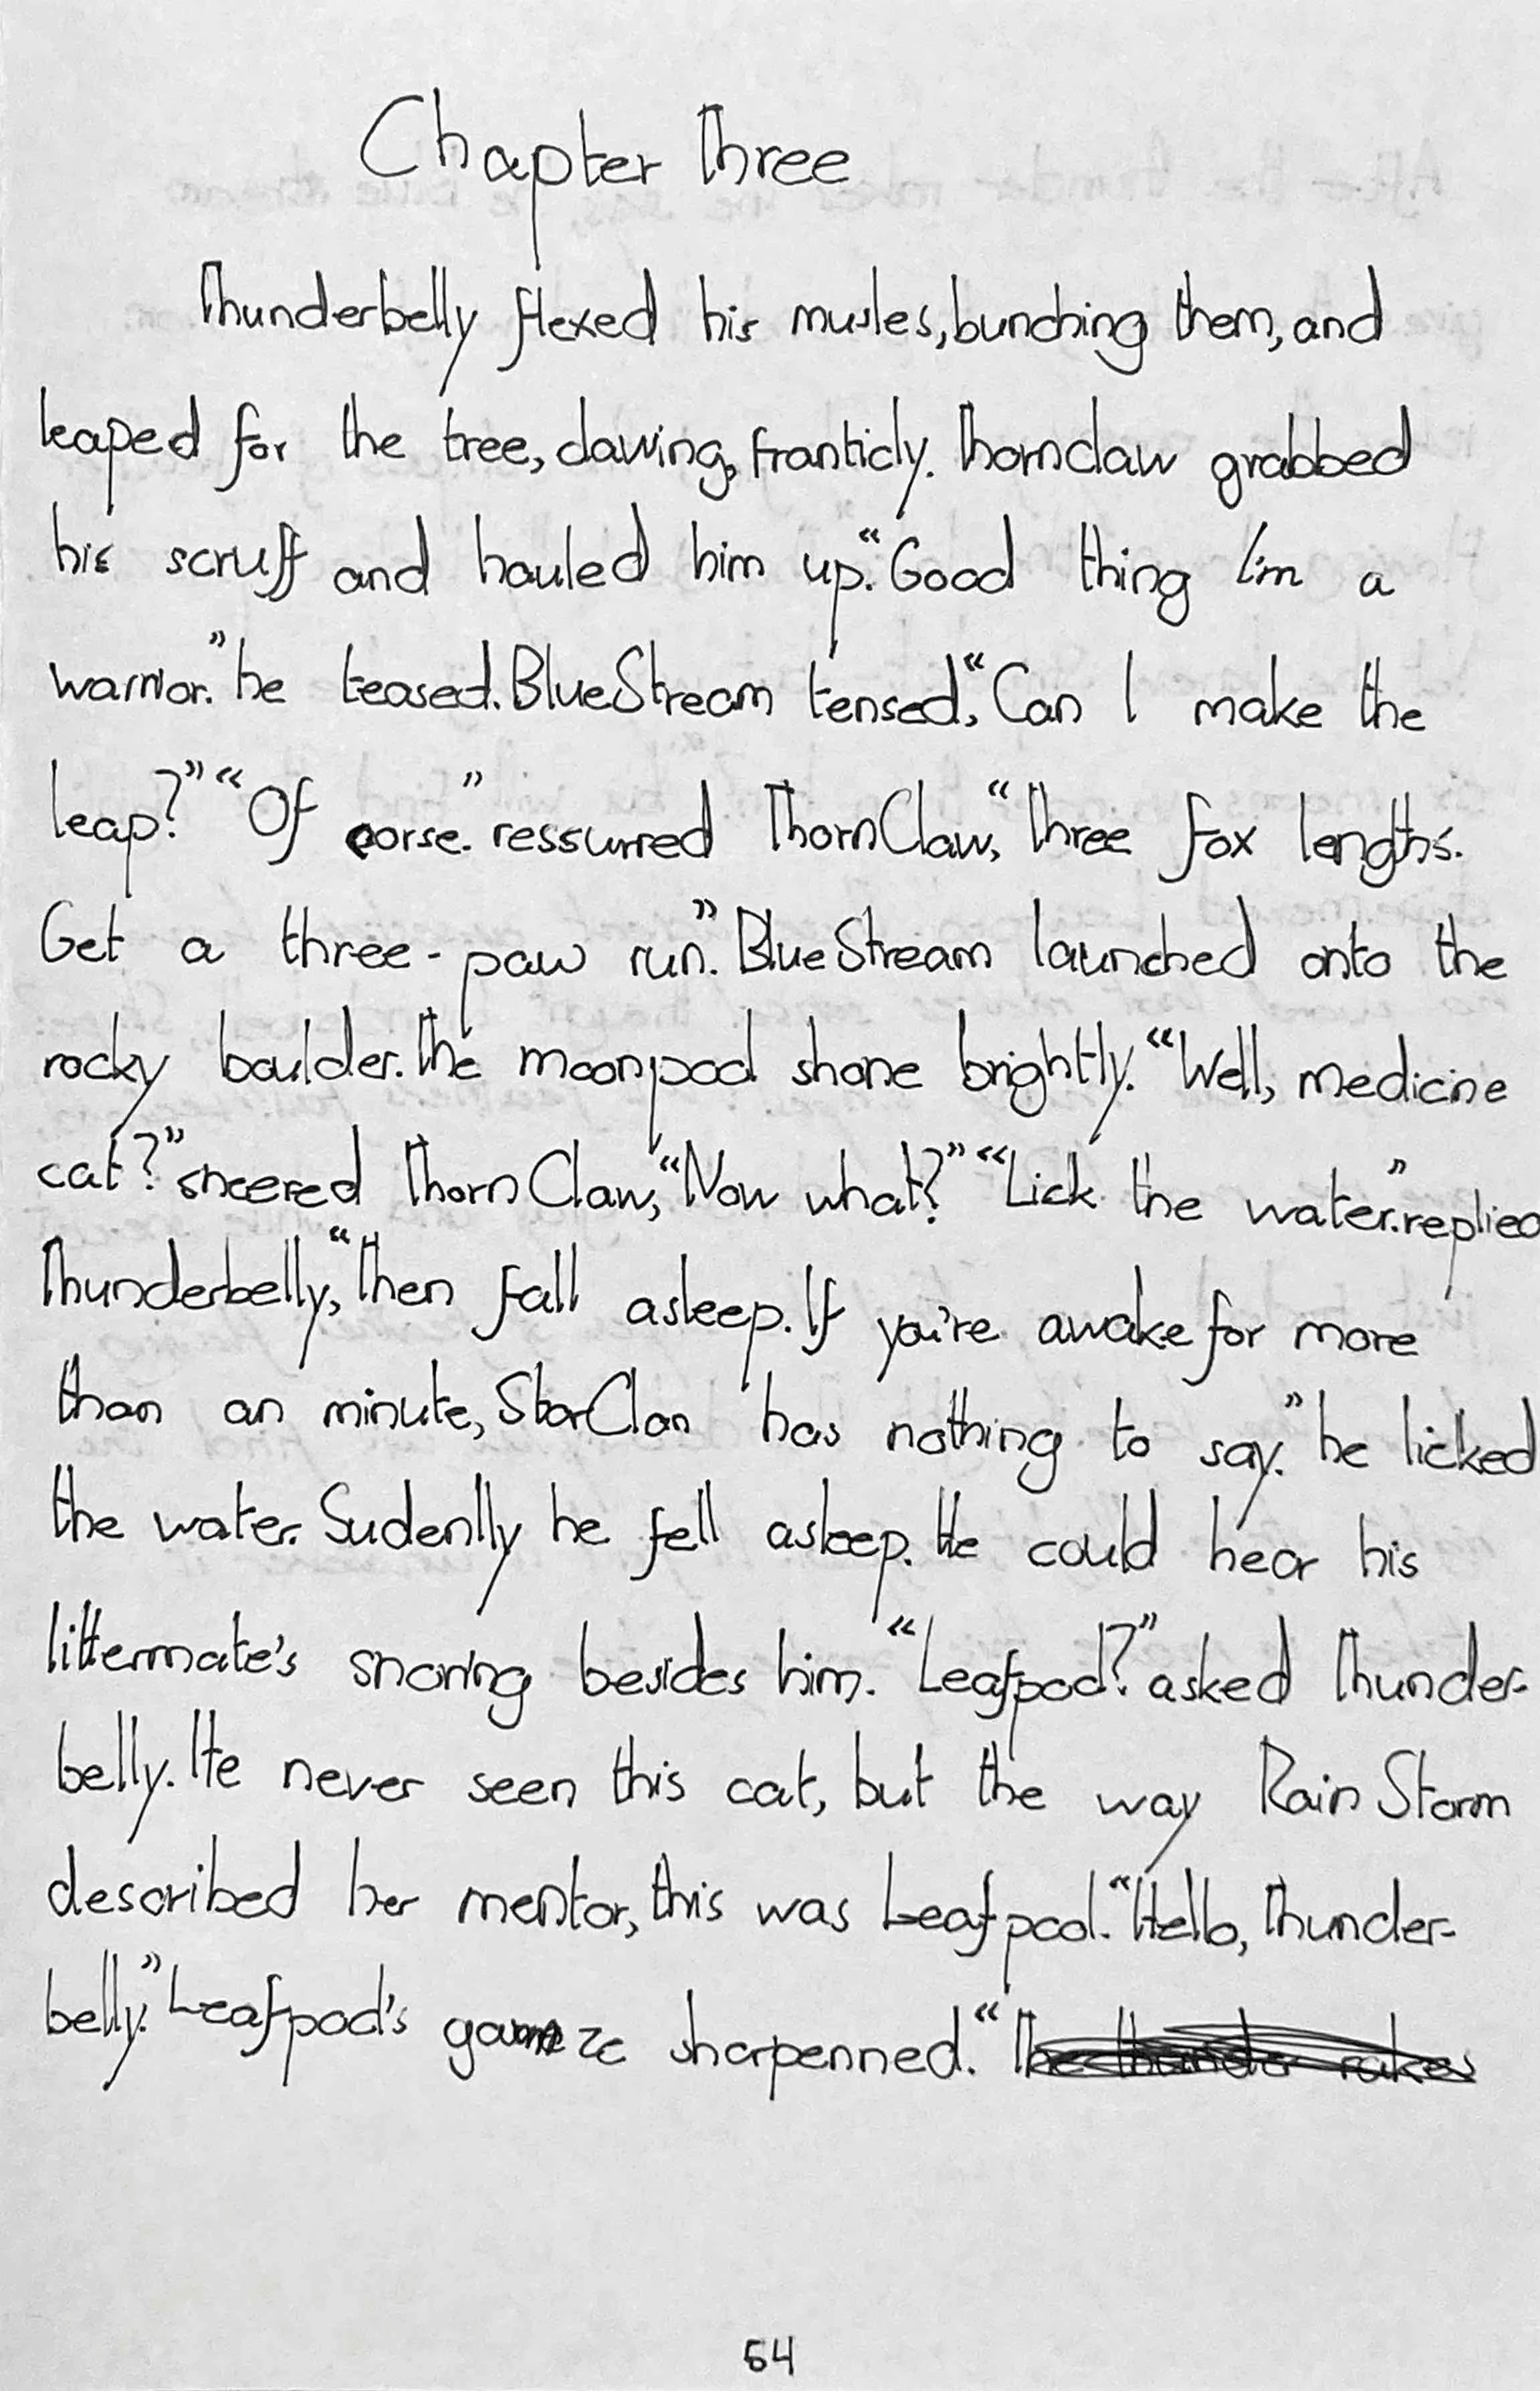 Chapter Three
Thunderbelly flexed his musles, bunching them, and
leaped for the tree, clawing, franticly. Thornclaw grabbed
his scruff and hauled him up. “Good thing I'm a
warrior.” he teased. BlueStream tensed, “Can I make the
leap?” “Of corse.” ressurred ThornClaw, “Three fox lengths.
Get a three-paw run.” BlueStream launched onto the
rocky boulder. The moonpool shone brightly. “Well, medicine
cat?” sneered ThornClaw, “Now what?” “Lick the water.” replied
Thunderbelly, “Then fall asleep. If you're awake for more
than an minute, StarClan has nothing to say.” he licked
the water. Sudenlly he fell asleep. He could hear his
littermate's snoring besides him. “Leafpool?” asked Thunder-
belly. He never seen this cat, but the way RainStorm
described her mentor, this was Leafpool. “Hello, Thunder-
belly.” Leafpool's gaze sharpenned. “The thunder rakes
54